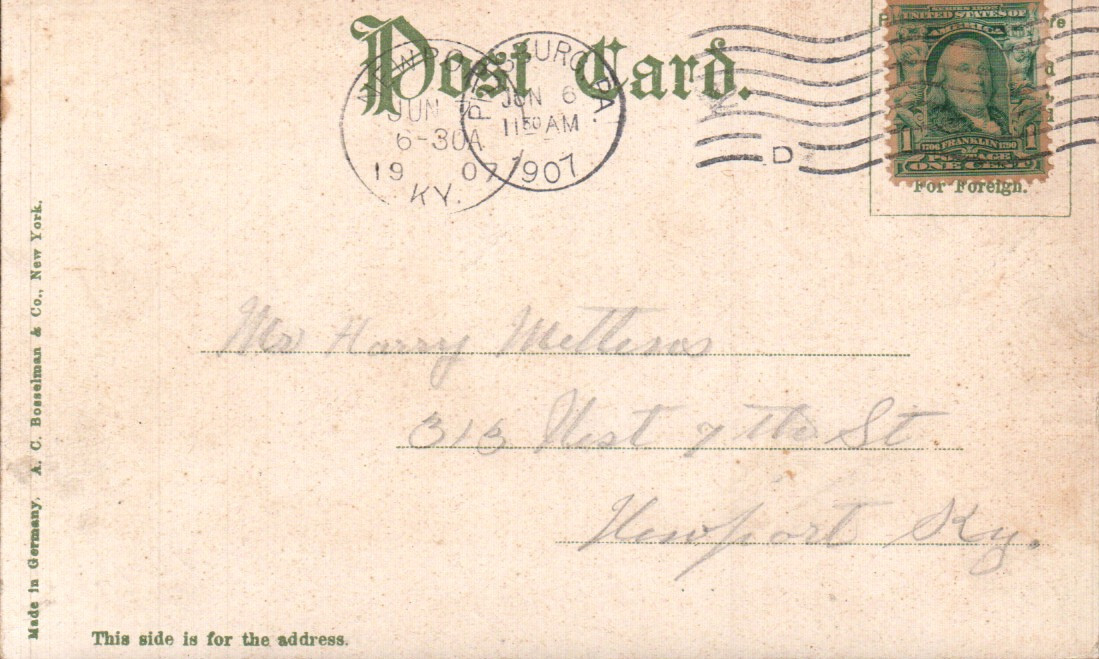 Post Card.
NEWPO
JUN
6-30A
19 07
KY.
PITTSBURG, PA.
JUN 6
11 30 AM
1907
D
SERIES 1902
UNITED STATES OF
AMERICA
1 1
1706 FRANKLIN 1790
POSTAGE
ONE CENT
For Foreign.
Mr Harry
313 West 7th St
Newport Ky.
Made in Germany, A. C. Bosselman & Co., New York.
This side is for the address.